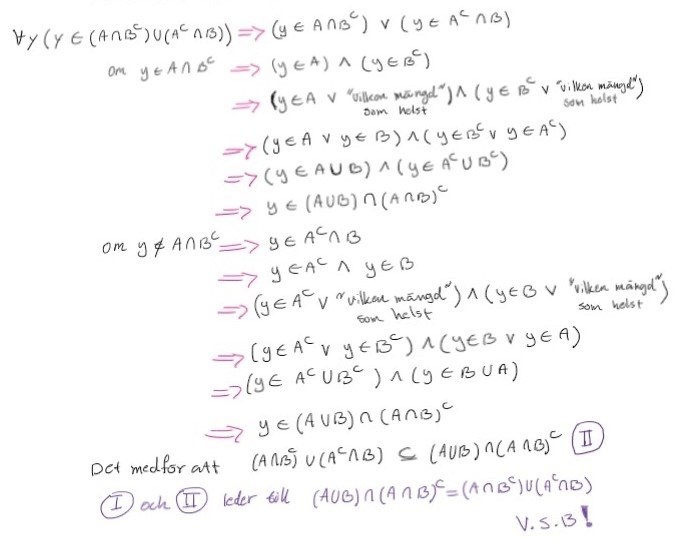 ∀y(y ∈ (A∩Bᶜ)∪(Aᶜ∩B)) => (y ∈ A∩Bᶜ) ∨ (y ∈ Aᶜ∩B)
om y∈A∩Bᶜ => (y∈A) ∧ (y∈Bᶜ)
=> (y∈A ∨ "vilken mängd" som helst) ∧ (y∈Bᶜ ∨ "vilken mängd" som helst)
=> (y∈A ∨ y∈B) ∧ (y∈Bᶜ ∨ y∈Aᶜ)
=> (y ∈ A∪B) ∧ (y∈ Aᶜ∪Bᶜ)
=> y ∈ (A∪B)∩(A∩B)ᶜ
om y∉A∩Bᶜ => y∈Aᶜ∩B
=> y∈Aᶜ ∧ y∈B
=> (y∈Aᶜ ∨ "vilken mängd" som helst) ∧ (y∈B ∨ "vilken mängd" som helst)
=> (y∈Aᶜ ∨ y∈Bᶜ) ∧ (y∈B ∨ y∈A)
=> (y∈ Aᶜ∪Bᶜ) ∧ (y∈B∪A)
=> y∈(A∪B)∩(A∩B)ᶜ
Det medför att (A∩Bᶜ)∪(Aᶜ∩B) ⊆ (A∪B)∩(A∩B)ᶜ II
I och II leder till (A∪B)∩(A∩B)ᶜ=(A∩Bᶜ)∪(Aᶜ∩B)
V.S.B!